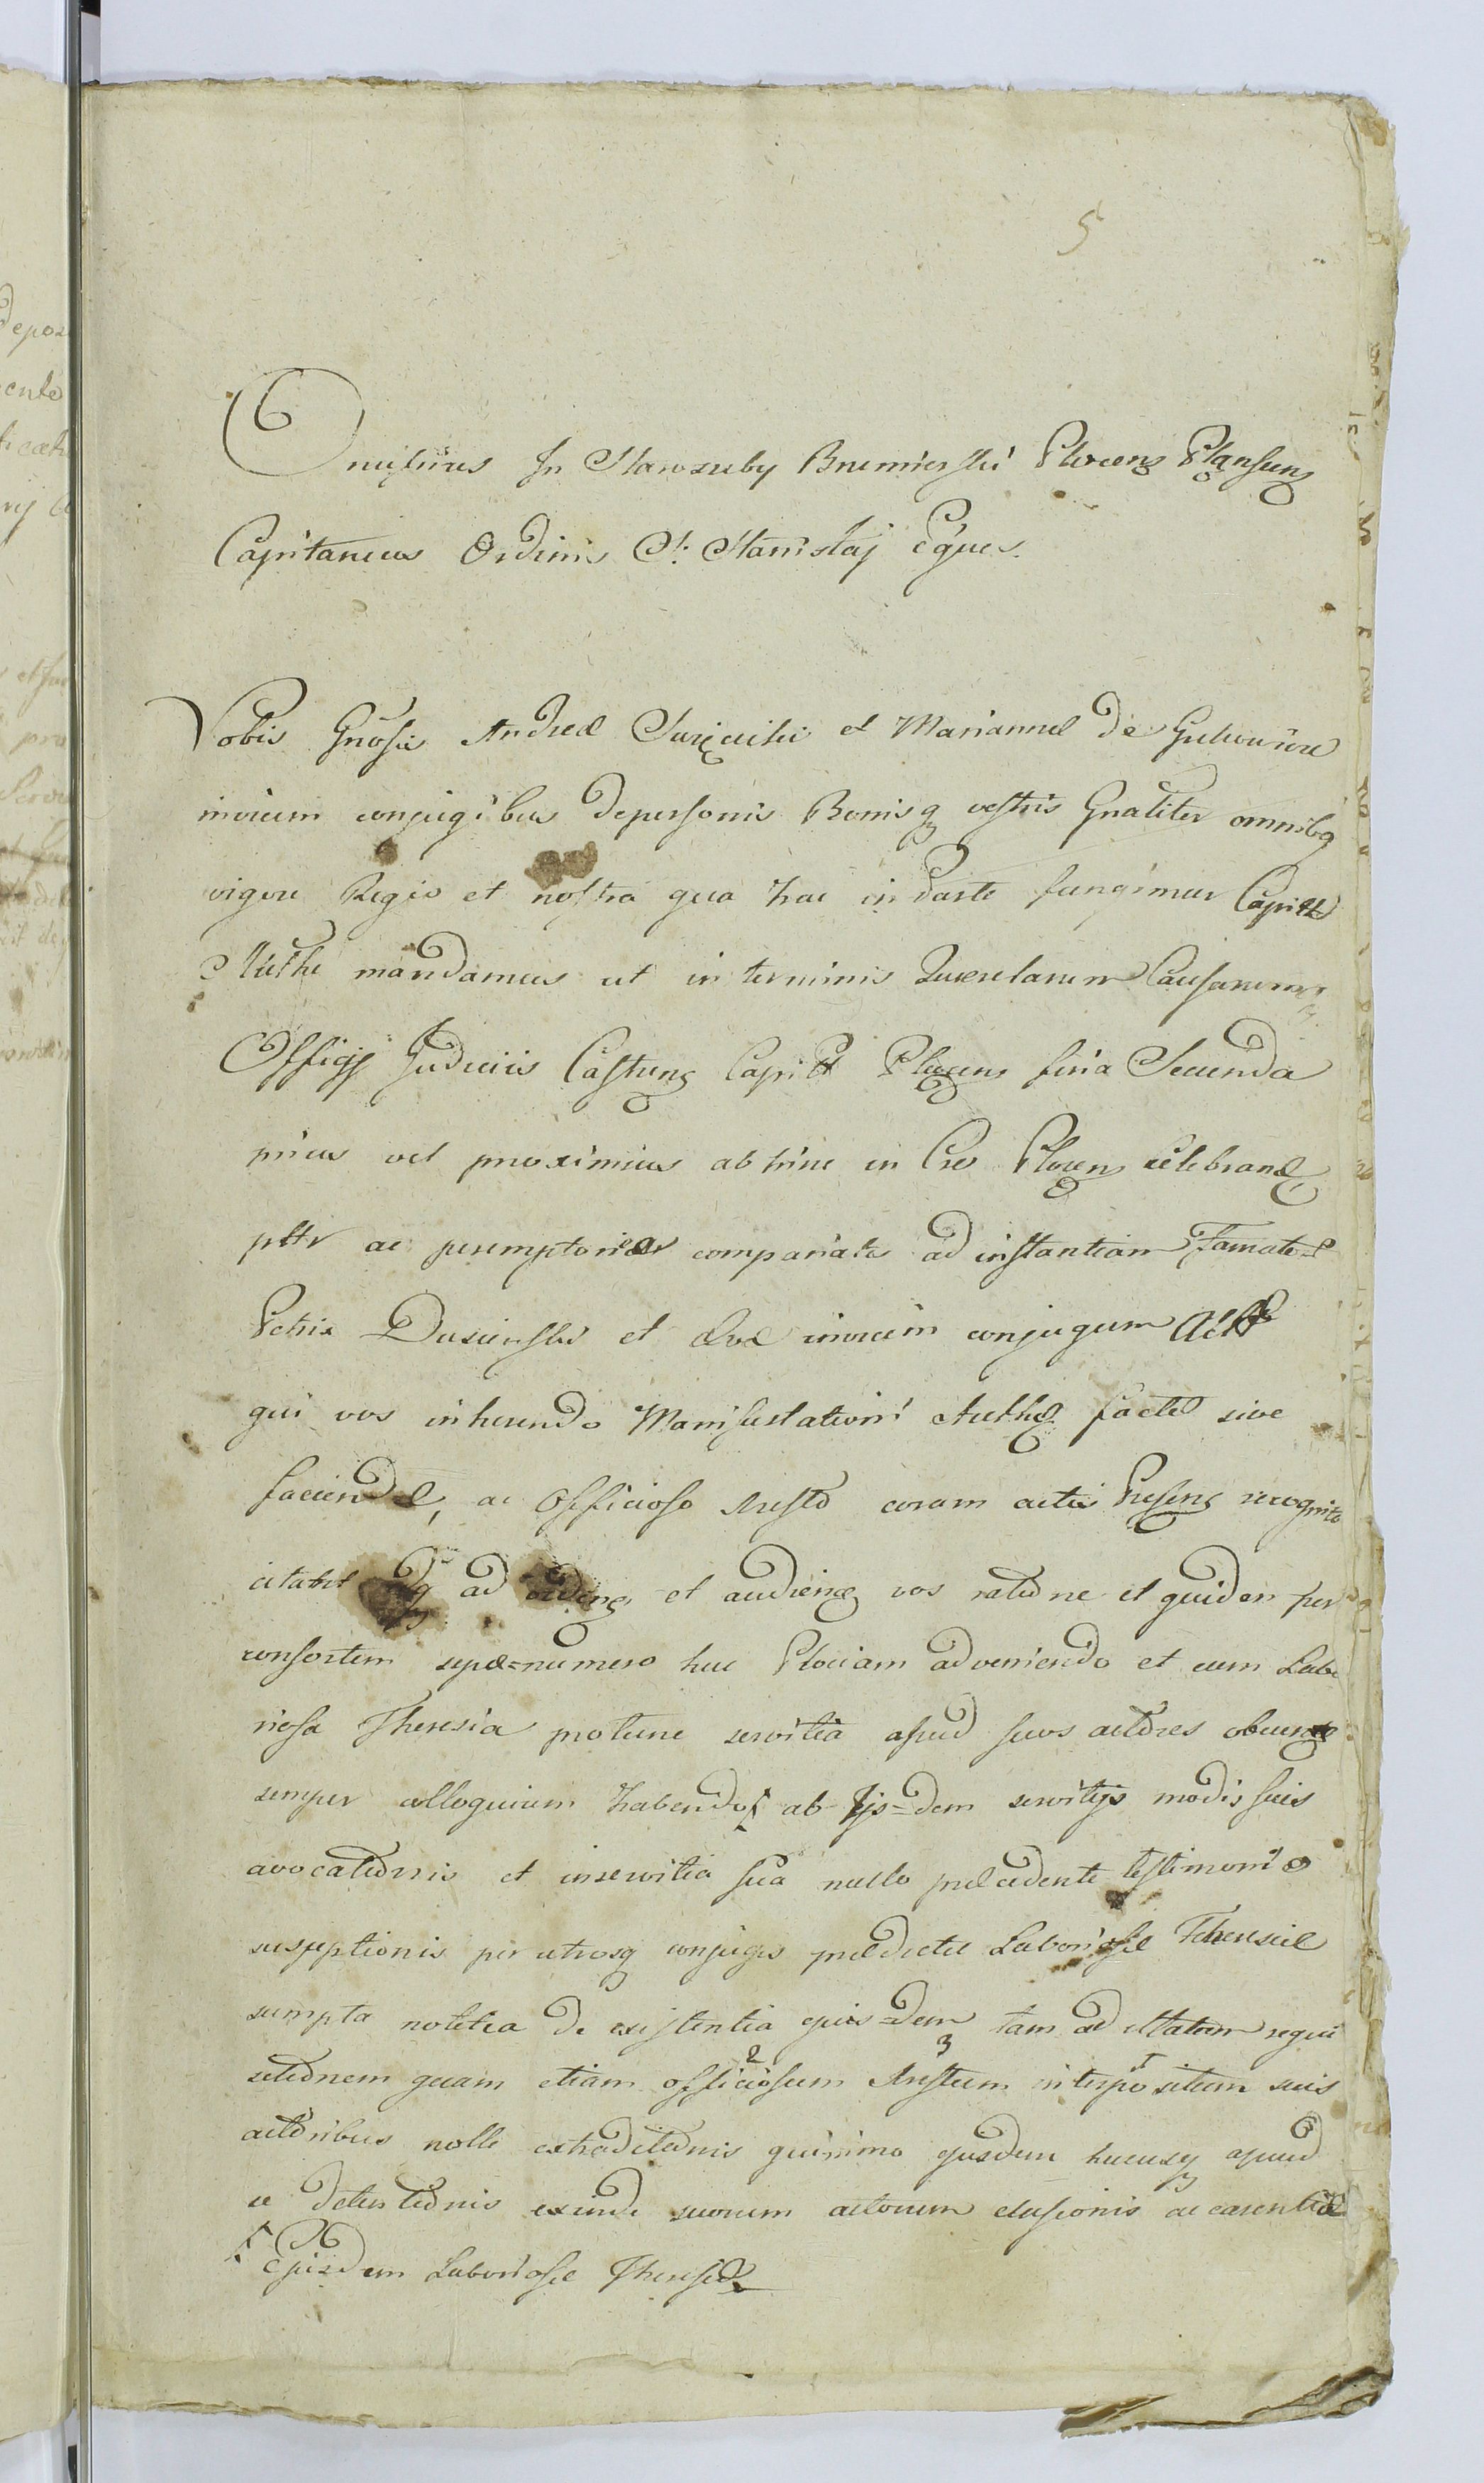 5
Onufrius In Stawozreby Bromierski Plocens Plansens
Capitaneus Ordinis S: Stanislaj Eques.
Vobis Gnosis Andreæ et Mariannæ de
invicem conjugibus depersonis Bonisq vestris Gnaliter omnibq
vigore Regio et nostra qua hac in parte fungimur Capitt
Authe mandamus ut in terminis Querelarum Causarum
Officij Judiciis Castrens Capitt Plocens feria Secunda
prius vel proximius ab hinc in Cro Plocens celebrand
pttr ac peremptorie compariatis ad instantiam Famate
Petri et Evæ invicem conjugum Act
qui vos inherendo Manifestationi Authæ factæ sive
faciendæ, ac Officioso Aresto coram actis Presens recognito
citant Idq ad videns et audiend vos ratione et quidem per
consortem sepæ=numero huc Plociam adveniendo et cum Labo
riosa Theresia protunc servitia apud suos actores obeunte
semper colloquium habendo ab Ijs=dem servitijs modis suis
avocationis et inservitia sua nullo præcedente testimonio
susceptionis per utrosq conjuges prædictæ Laboriosæ Theresiæ
sumpta notitia de existentia ejus=dem tam ad requi
sitionem quam etiam officiosum Arestum interpositum suis
actoribus nolle extraditionis quinimo ejusdem hucusq apud
se detentionis exinde suorum actorum elusionis ac carentiæ
Ejusdem Laboriosæ Theresiæ